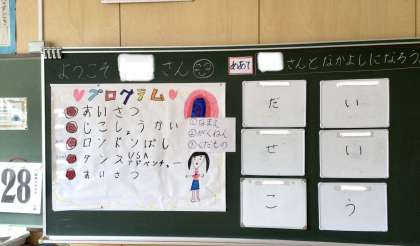 ようこそ さん
めあて さんとなかよしになろう
プログラム
あいさつ
じこしょうかい
ロンドンばし
ダンス USA
アドベンチャー
あいさつ
①なまえ
②がくねん
③くだもの
だい
せい
こう
28